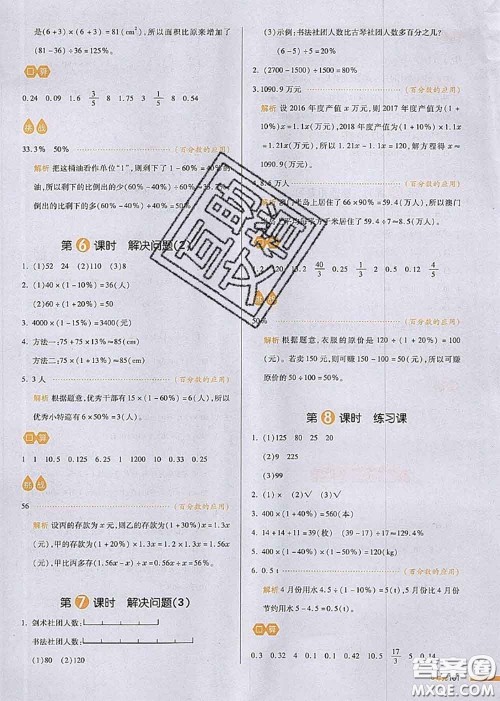 是(6+3)×(6+3)=81(cm²),所以面积比原来增加了
(81-36)÷36=125%。
口算
0.24 0.09 10 1.6 3/5 8 1.75 3 0.54 1.5
挑战
33.3% 50% (百分数的应用)
解析 把这桶油看作单位“1”,则剩下了1-60%=40%的
油,所以剩下的比倒出的少(60%-40%)÷60%≈
倒出的比剩下的多(60%-40%)÷40%=50%。
第6课时 解决问题(2)
1. (1)52 24 (2)110 (3)8
2. (1)40×(1-10%)=36(人)
(2)60÷(1+20%)=50(人)
3. 4000×(1-15%)=3400(元)
4. 方法一:75+75×13%=85(元)
方法二:75×(1+13%)≈85(元)
5. 3人 (百分数的应用)
解析 根据题意,优秀干部有15×(1-60%)=6(人),所以
优秀小特洁有6×50%=3(人)。
口算
1 1 10.5 0.125 100 6 1000 1.32 0.13
挑战
56 (百分数的应用)
解析 设丙的存款为x元,则乙的存款为(1+30%)x=1.3x
(元),甲的存款为(1+20%)×1.3x=1.56x(元),所
以甲的存款比丙多(1.56x-x)÷x=56%。
第7课时 解决问题(3)
1. 剑术社团人数:
书法社团人数:
(1)80 (2)120
(3)示例:书法社团人数比古琴社团人数多百分之几?
(6-5)÷5=20%
2. (2700-1500)÷1500=80%
3. 1090.9万元 (百分数的应用)
解析 设2016年度产值x万元,则2017年度产值为(1+
10%)x=1.1x(万元),2018年度产值为(1+10%)×
1.1x=1.21x(万元),所以1.21x=1320,解方程得x≈
1090.9。
4. 8.5万人 (百分数的应用)
1.2 120 13.2 40/3 0.25 1 7.2 0.4 0.12
50% (百分数的应用)
解析 根据题意,衣服的原价是120÷(1+20%)=100
(元)。若卖150元,则可赚150-100=50(元),也就是可
赚50÷100=50%。
第8课时 练习课
1. (1)125 80 25 20
(2)(3)99
2. (1)✓ (2)✗ (3)✓
3. 400×(1+40%)=560(本)
4. 14+14+11=39(枚) (39-17)÷17≈129.4%
5. 400×(1-10%)=360(米)
6. 0.5t (百分数的应用)
解析 4月份用水4.5÷(1-10%)=5(t),所以5月份比4月份
节约用水5-4.5=0.5(t)。
口算
0.3 0.32 0.15 0.4 10.5 17/3 5 2 0.44
互助文档
答案圈
MXQE.COM